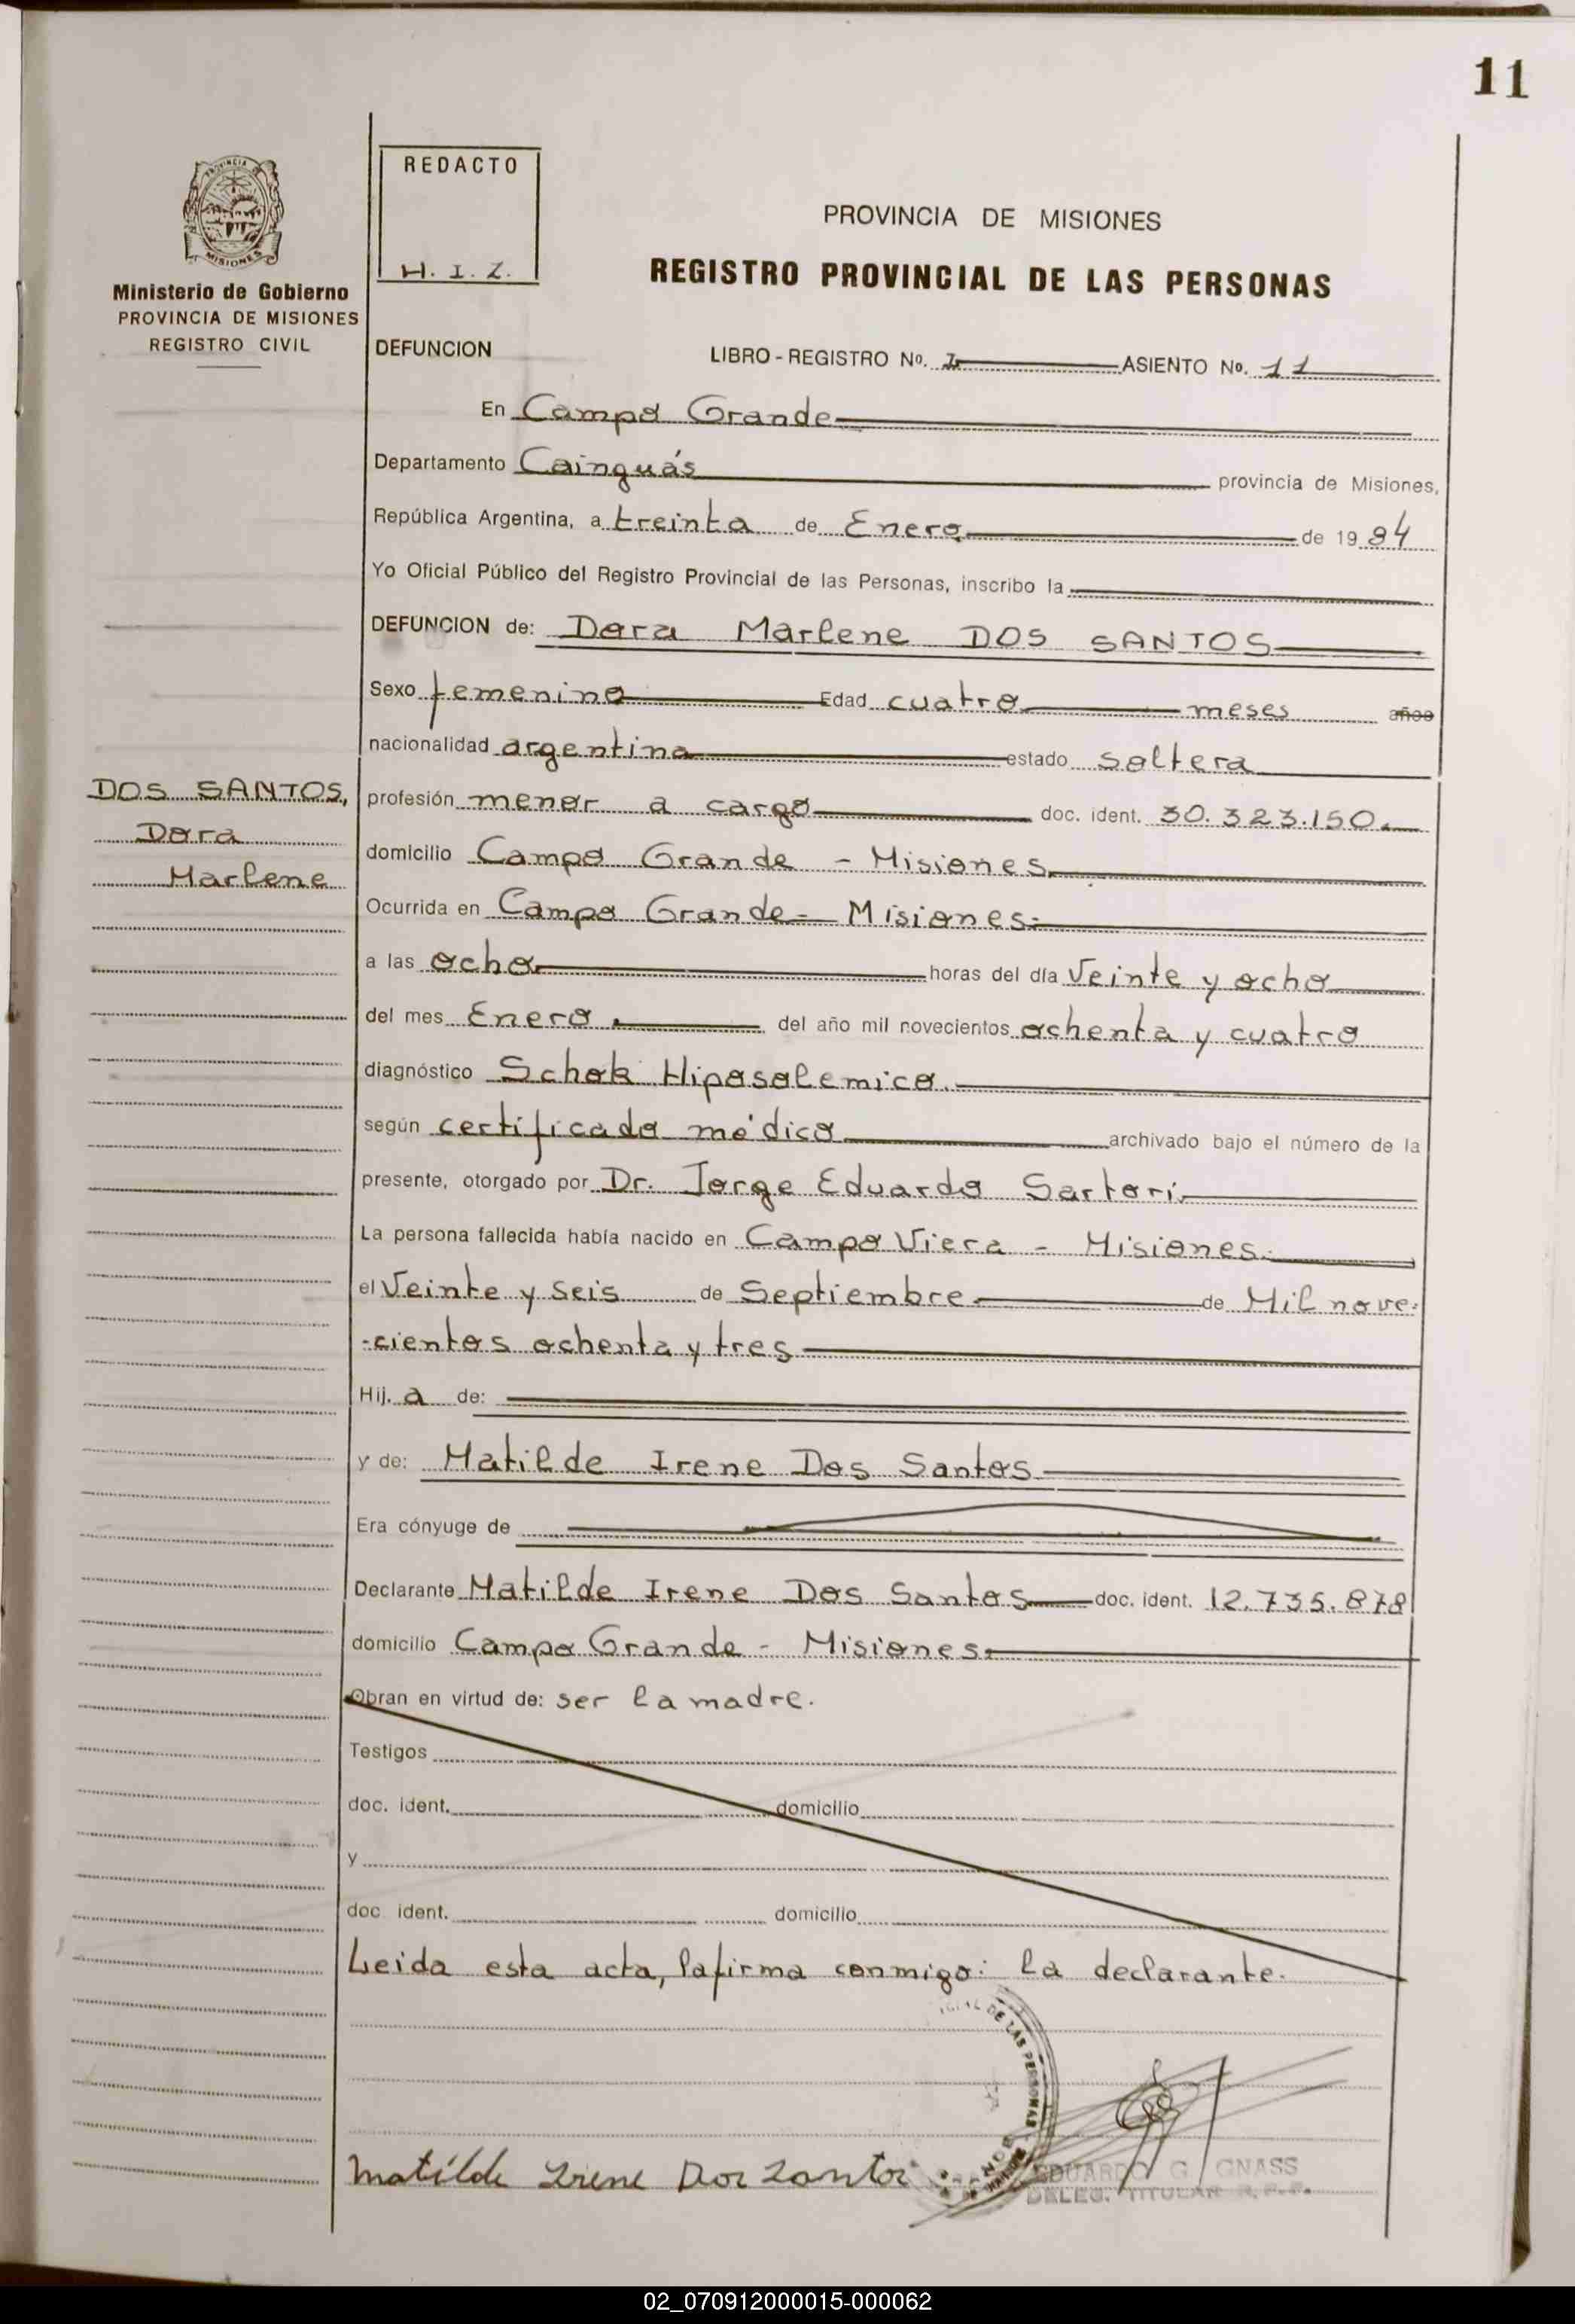 11
REDACTO
H. I. Z.
PROVINCIA
MISIONES
Ministerio de Gobierno
PROVINCIA DE MISIONES
REGISTRO CIVIL
PROVINCIA DE MISIONES
REGISTRO PROVINCIAL DE LAS PERSONAS
DEFUNCION LIBRO - REGISTRO No. I ASIENTO No. 11
En Campo Grande
Departamento Cainguás provincia de Misiones,
República Argentina, a treinta de Enero de 19 84
Yo Oficial Público del Registro Provincial de las Personas, inscribo la
DEFUNCION de: Dora Marlene DOS SANTOS
Sexo femenino Edad cuatro meses años
nacionalidad argentina estado soltera
DOS SANTOS,
Dora
Marlene
profesión menor a cargo doc. ident. 30.323.150.
domicilio Campo Grande - Misiones
Ocurrida en Campo Grande - Misiones.
a las ocho horas del día Veinte y ocho
del mes Enero. del año mil novecientos ochenta y cuatro
diagnóstico Schok Hiposolemico.
según certificado médico archivado bajo el número de la
presente, otorgado por Dr. Jorge Eduardo Sartori
La persona fallecida había nacido en Campo Viera - Misiones.
el Veinte y seis de Septiembre de Mil nove-
-cientos ochenta y tres
Hij. a de:
y de: Matilde Irene Dos Santos
Era cónyuge de
Declarante Matilde Irene Dos Santos doc. ident. 12.735.878
domicilio Campo Grande - Misiones.
Obran en virtud de: ser la madre.
Testigos
doc. ident. domicilio
y
doc ident. domicilio
Leida esta acta, la firma conmigo: la declarante.
DE LAS PERSONAS
Matilde Irene Dos Santos
EDUARDO G. GNASS
DELEG. TITULAR R.P.P.
02_070912000015-000062